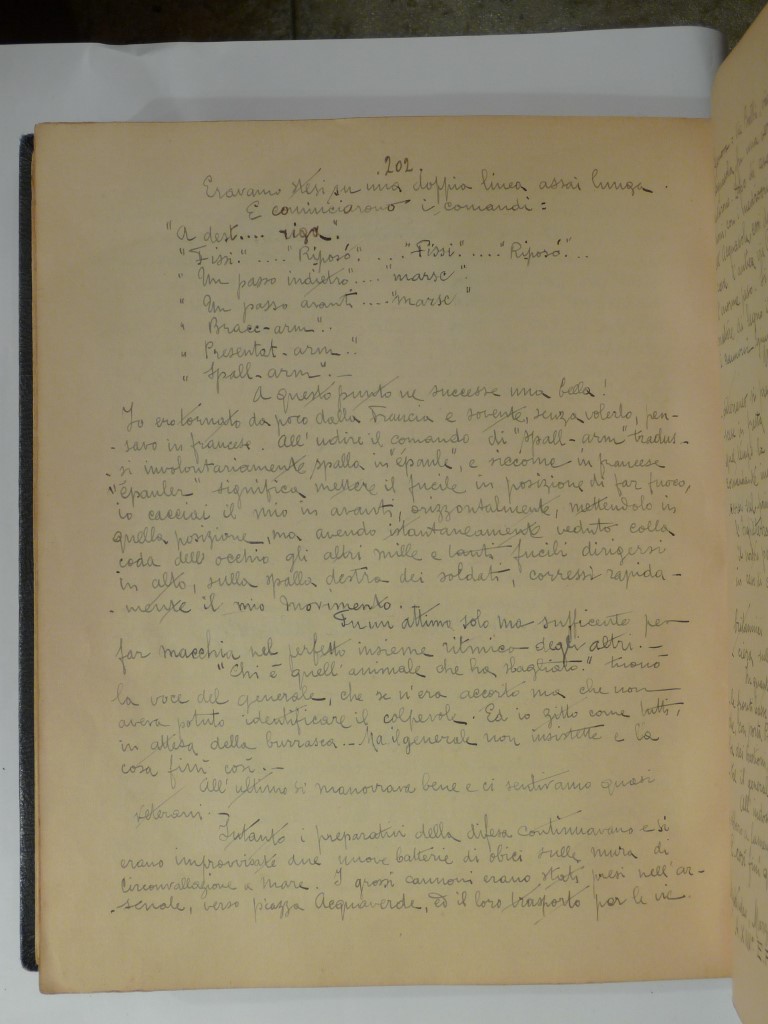 202.
Eravamo stesi su una doppia linea assai lunga.
E cominciarono i comandi:
"A dest.... riga".
"Fissi." ...."Riposò." ...."Fissi." ...."Riposò."...
" Un passo indietro"...."marsc".
" Un passo avanti ...."marsc"
" Bracc-arm"..
" Presentat-arm"..
" Spall-arm".—
A questo punto ne successe una bella!
Io ero tornato da poco dalla Francia e sovente, senza volerlo, pen-
-savo in francese. All'udire il comando di "spall-arm" tradus-
-si involontariamente spalla in "épaule", e siccome in francese
"épauler" significa mettere il fucile in posizione di far fuoco,
io cacciai il mio in avanti, orizzontalmente, mettendolo in
quella posizione, ma avendo istantaneamente veduto colla
coda dell'occhio gli altri mille e tanti fucili dirigersi
in alto, sulla spalla destra dei soldati, corressi rapida-
-mente il mio movimento.
Fu un attimo solo ma sufficente per
far macchia nel perfetto insieme ritmico degli altri.—
"Chi è quell'animale che ha sbagliato." tuonò
la voce del generale, che se n'era accorto ma che non
aveva potuto identificare il colpevole. Ed io zitto come tutti,
in attesa della burrasca.— Ma il generale non insistette e la
cosa finì così.—
All'ultimo si manovrava bene e ci sentivamo quasi
veterani.—
Intanto i preparativi della difesa continuavano e si
erano improvvisate due nuove batterie di obici sulle mura di
circonvallazione a mare. I grossi cannoni erano stati presi nell'ar-
-senale, verso piazza Acquaverde, ed il loro trasporto per le vie